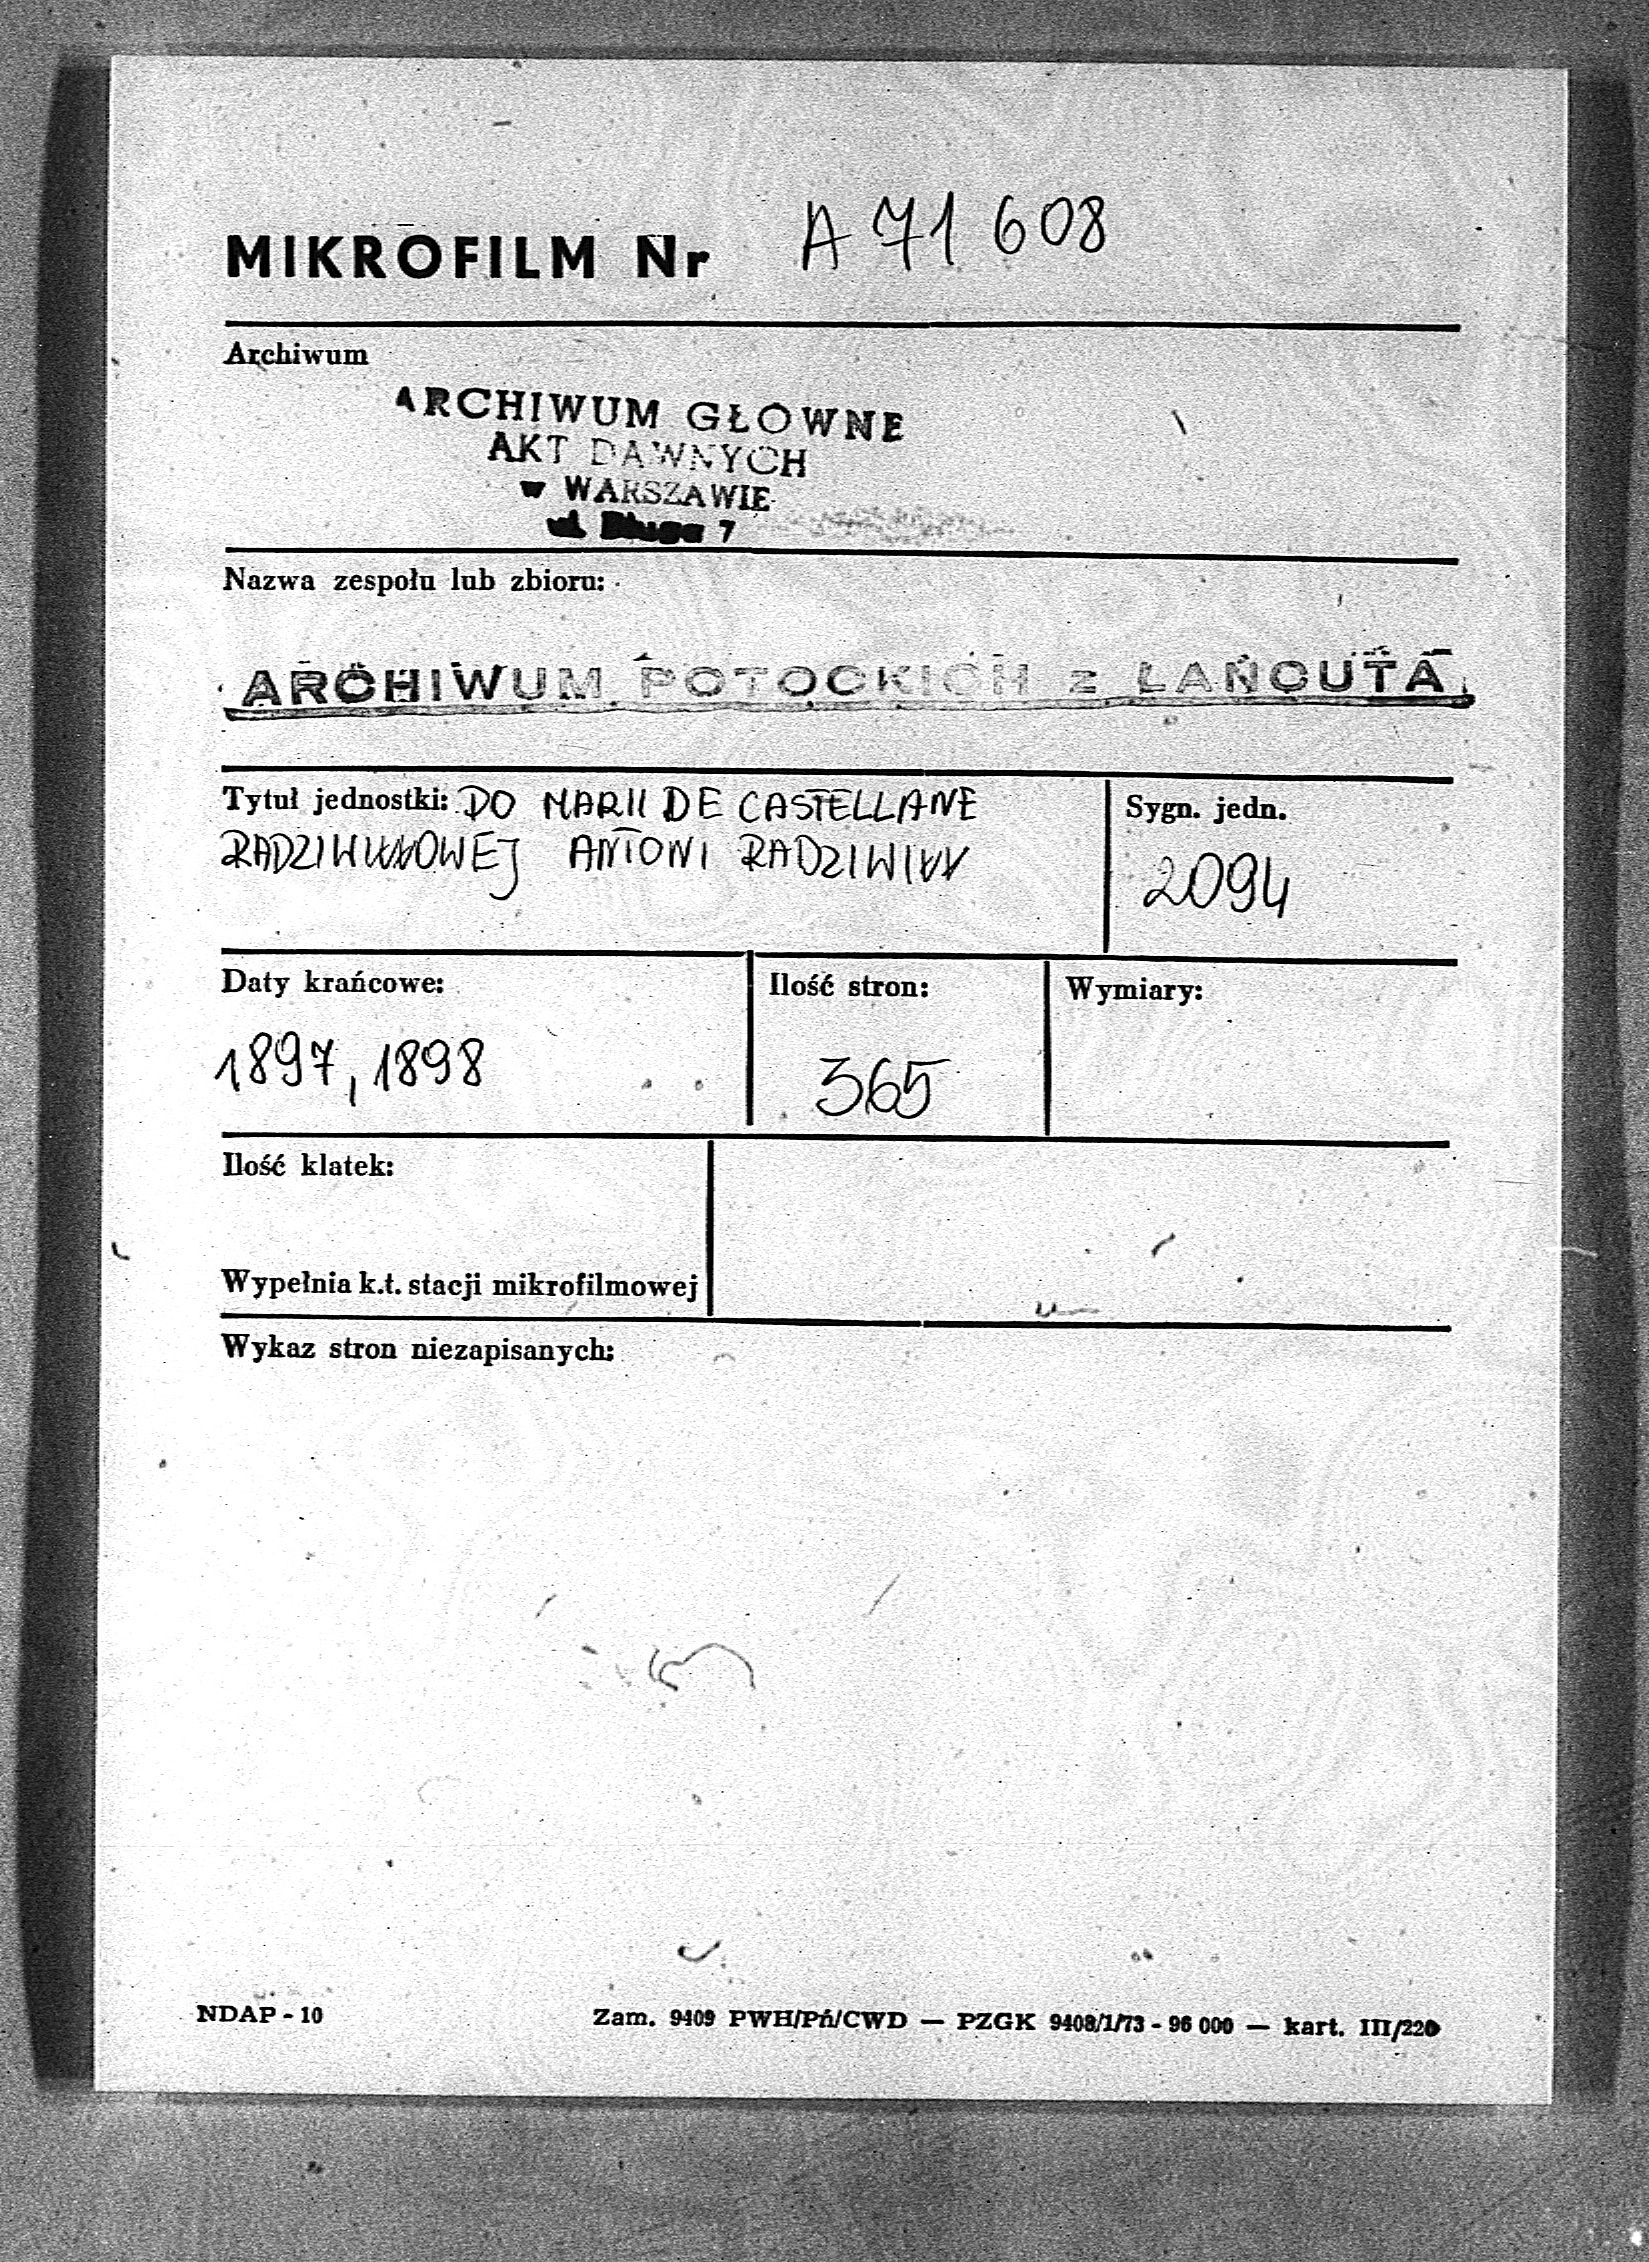 MIKROFILM Nr A 71 608
Archiwum
ARCHIWUM GŁÓWNE
AKT DAWNYCH
w WARSZAWIE
ul. Długa 7
Nazwa zespołu lub zbioru:
ARCHIWUM POTOCKICH z ŁAŃCUTA
Tytuł jednostki: DO MARII DE CASTELLANE
RADZIWIŁŁOWEJ ANTONI RADZIWIŁŁ
Sygn. jedn.
2094
Daty krańcowe:
1897, 1898
Ilość stron:
365
Wymiary:
Ilość klatek:
Wypełnia k.t. stacji mikrofilmowej
Wykaz stron niezapisanych:
NDAP - 10
Zam. 9409 PWH/Pń/CWD — PZGK 9408/1/73 - 96 000 — kart. III/220